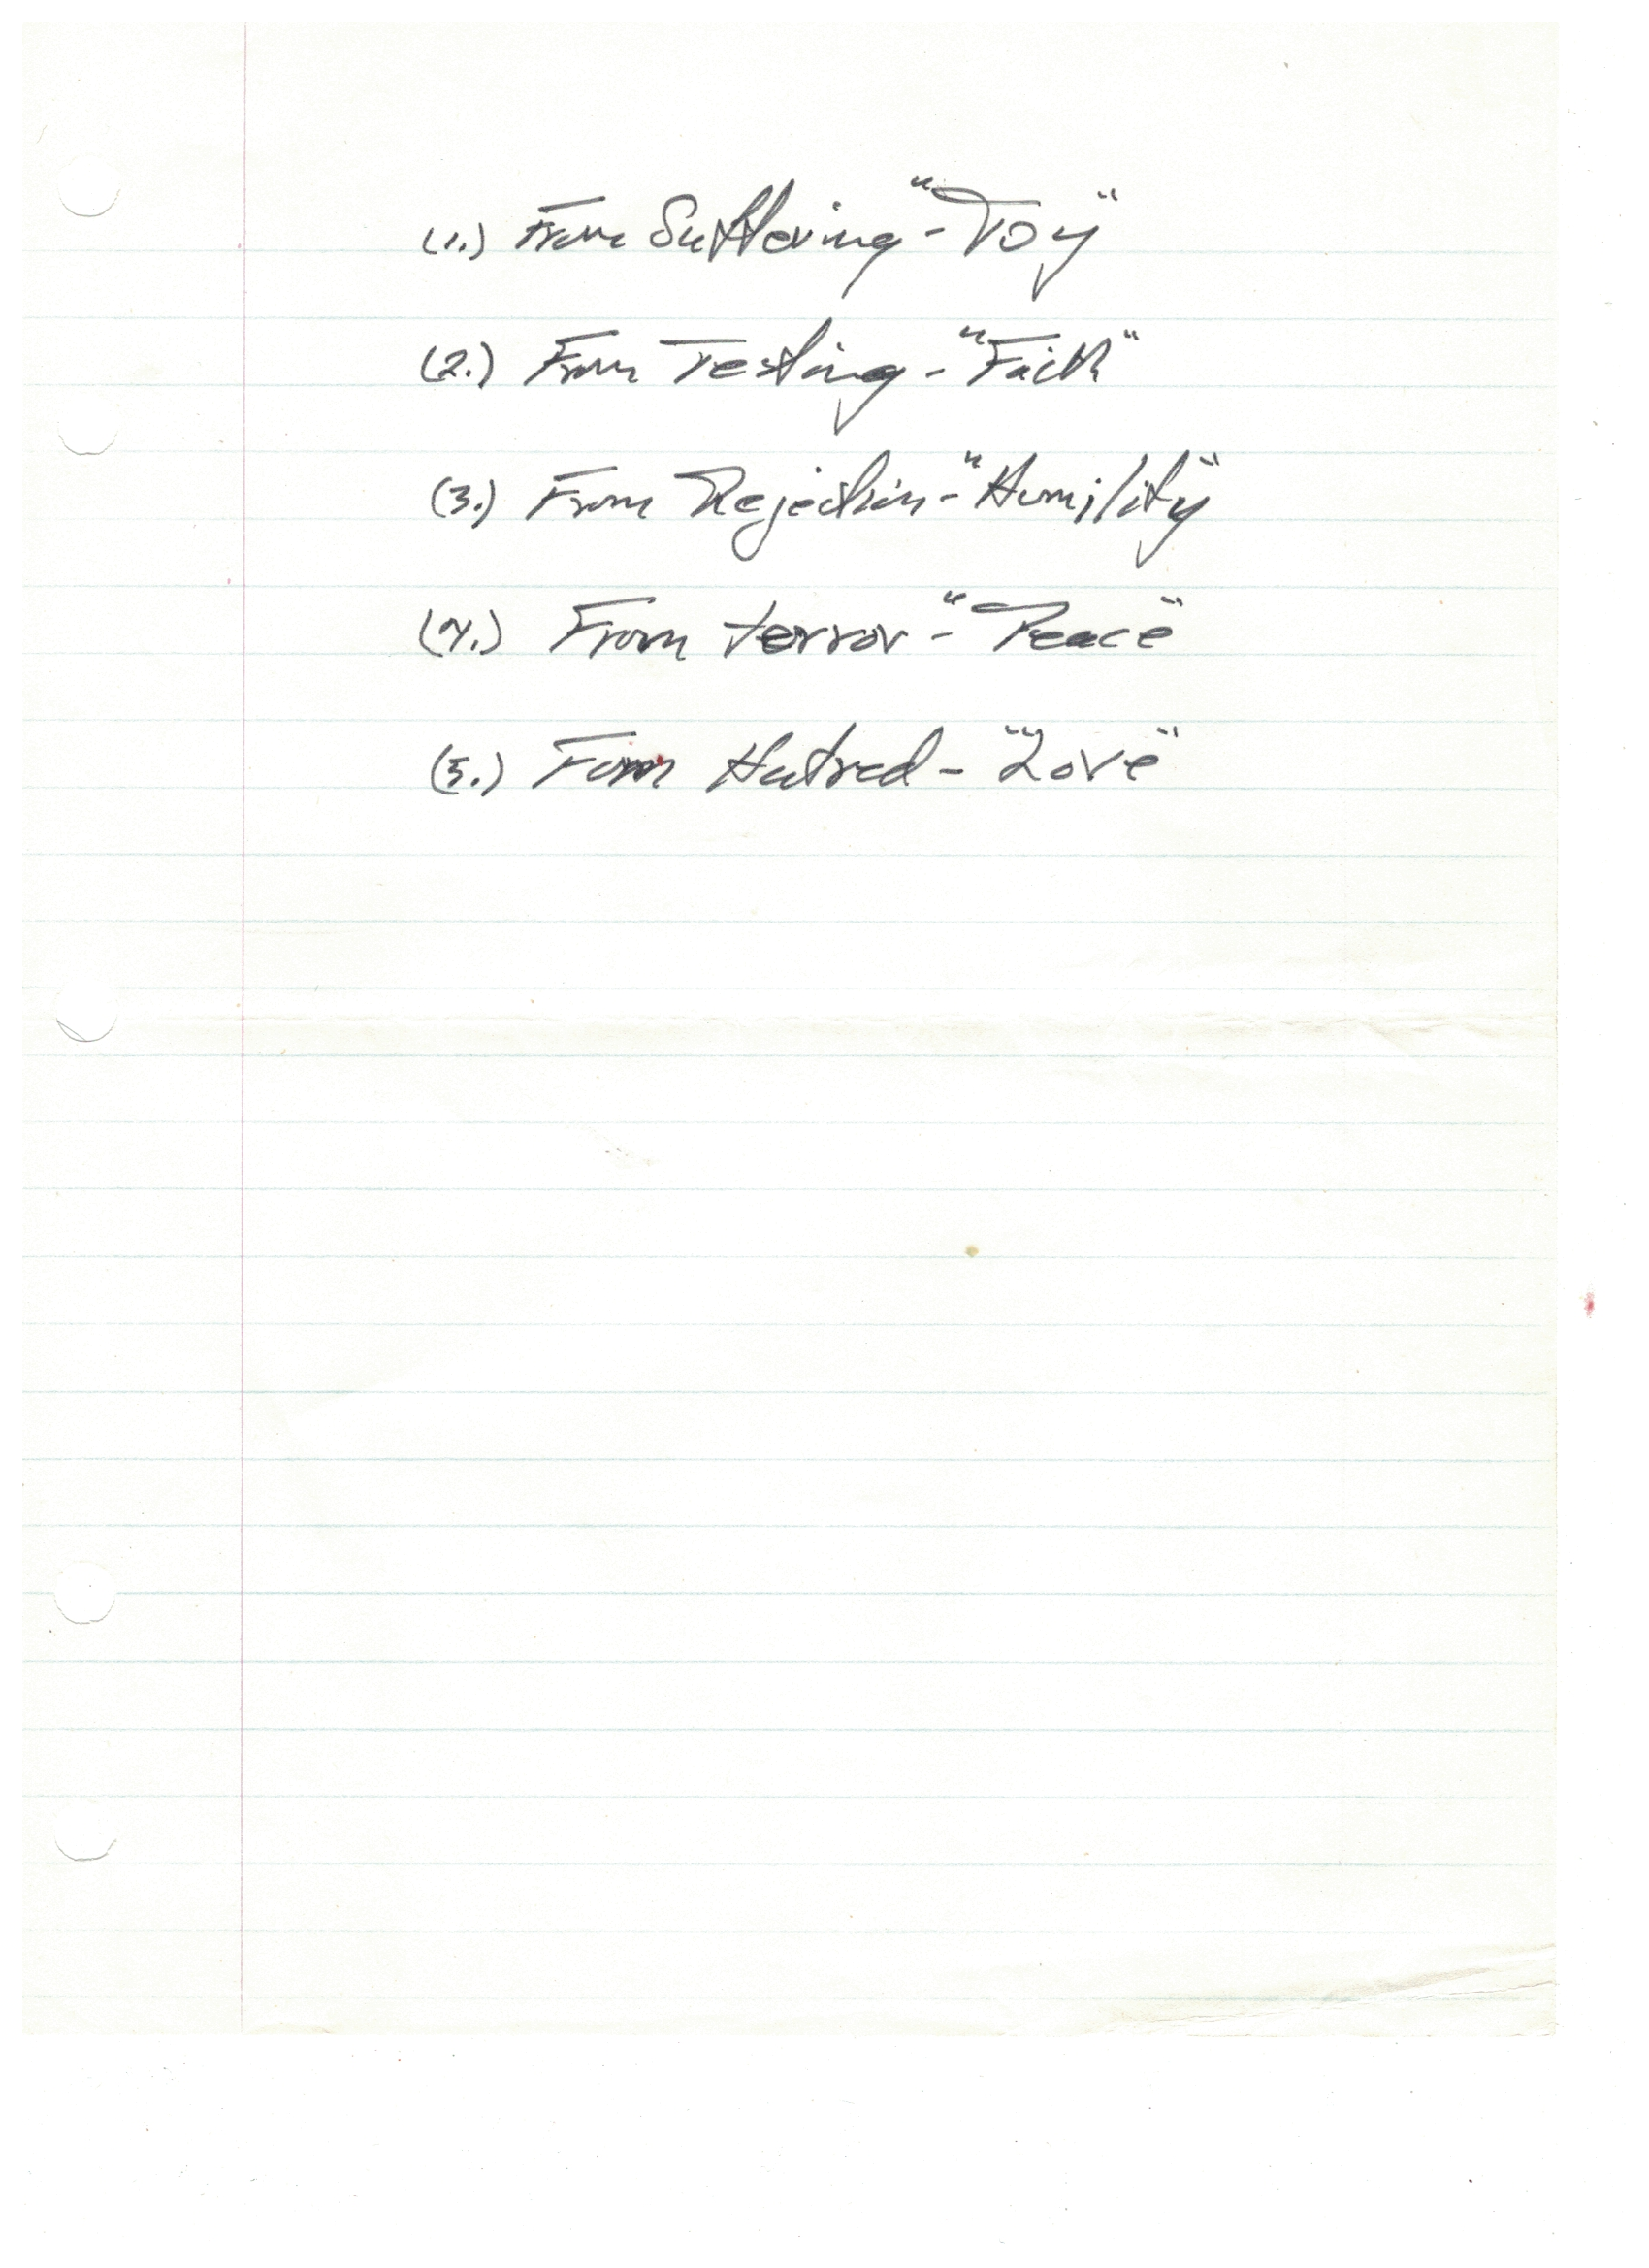 (1.) From Suffering - "Joy"
(2.) From Testing - "Faith"
(3.) From Rejection - "Humility"
(4.) From terror - "Peace"
(5.) From Hatred - "Love"